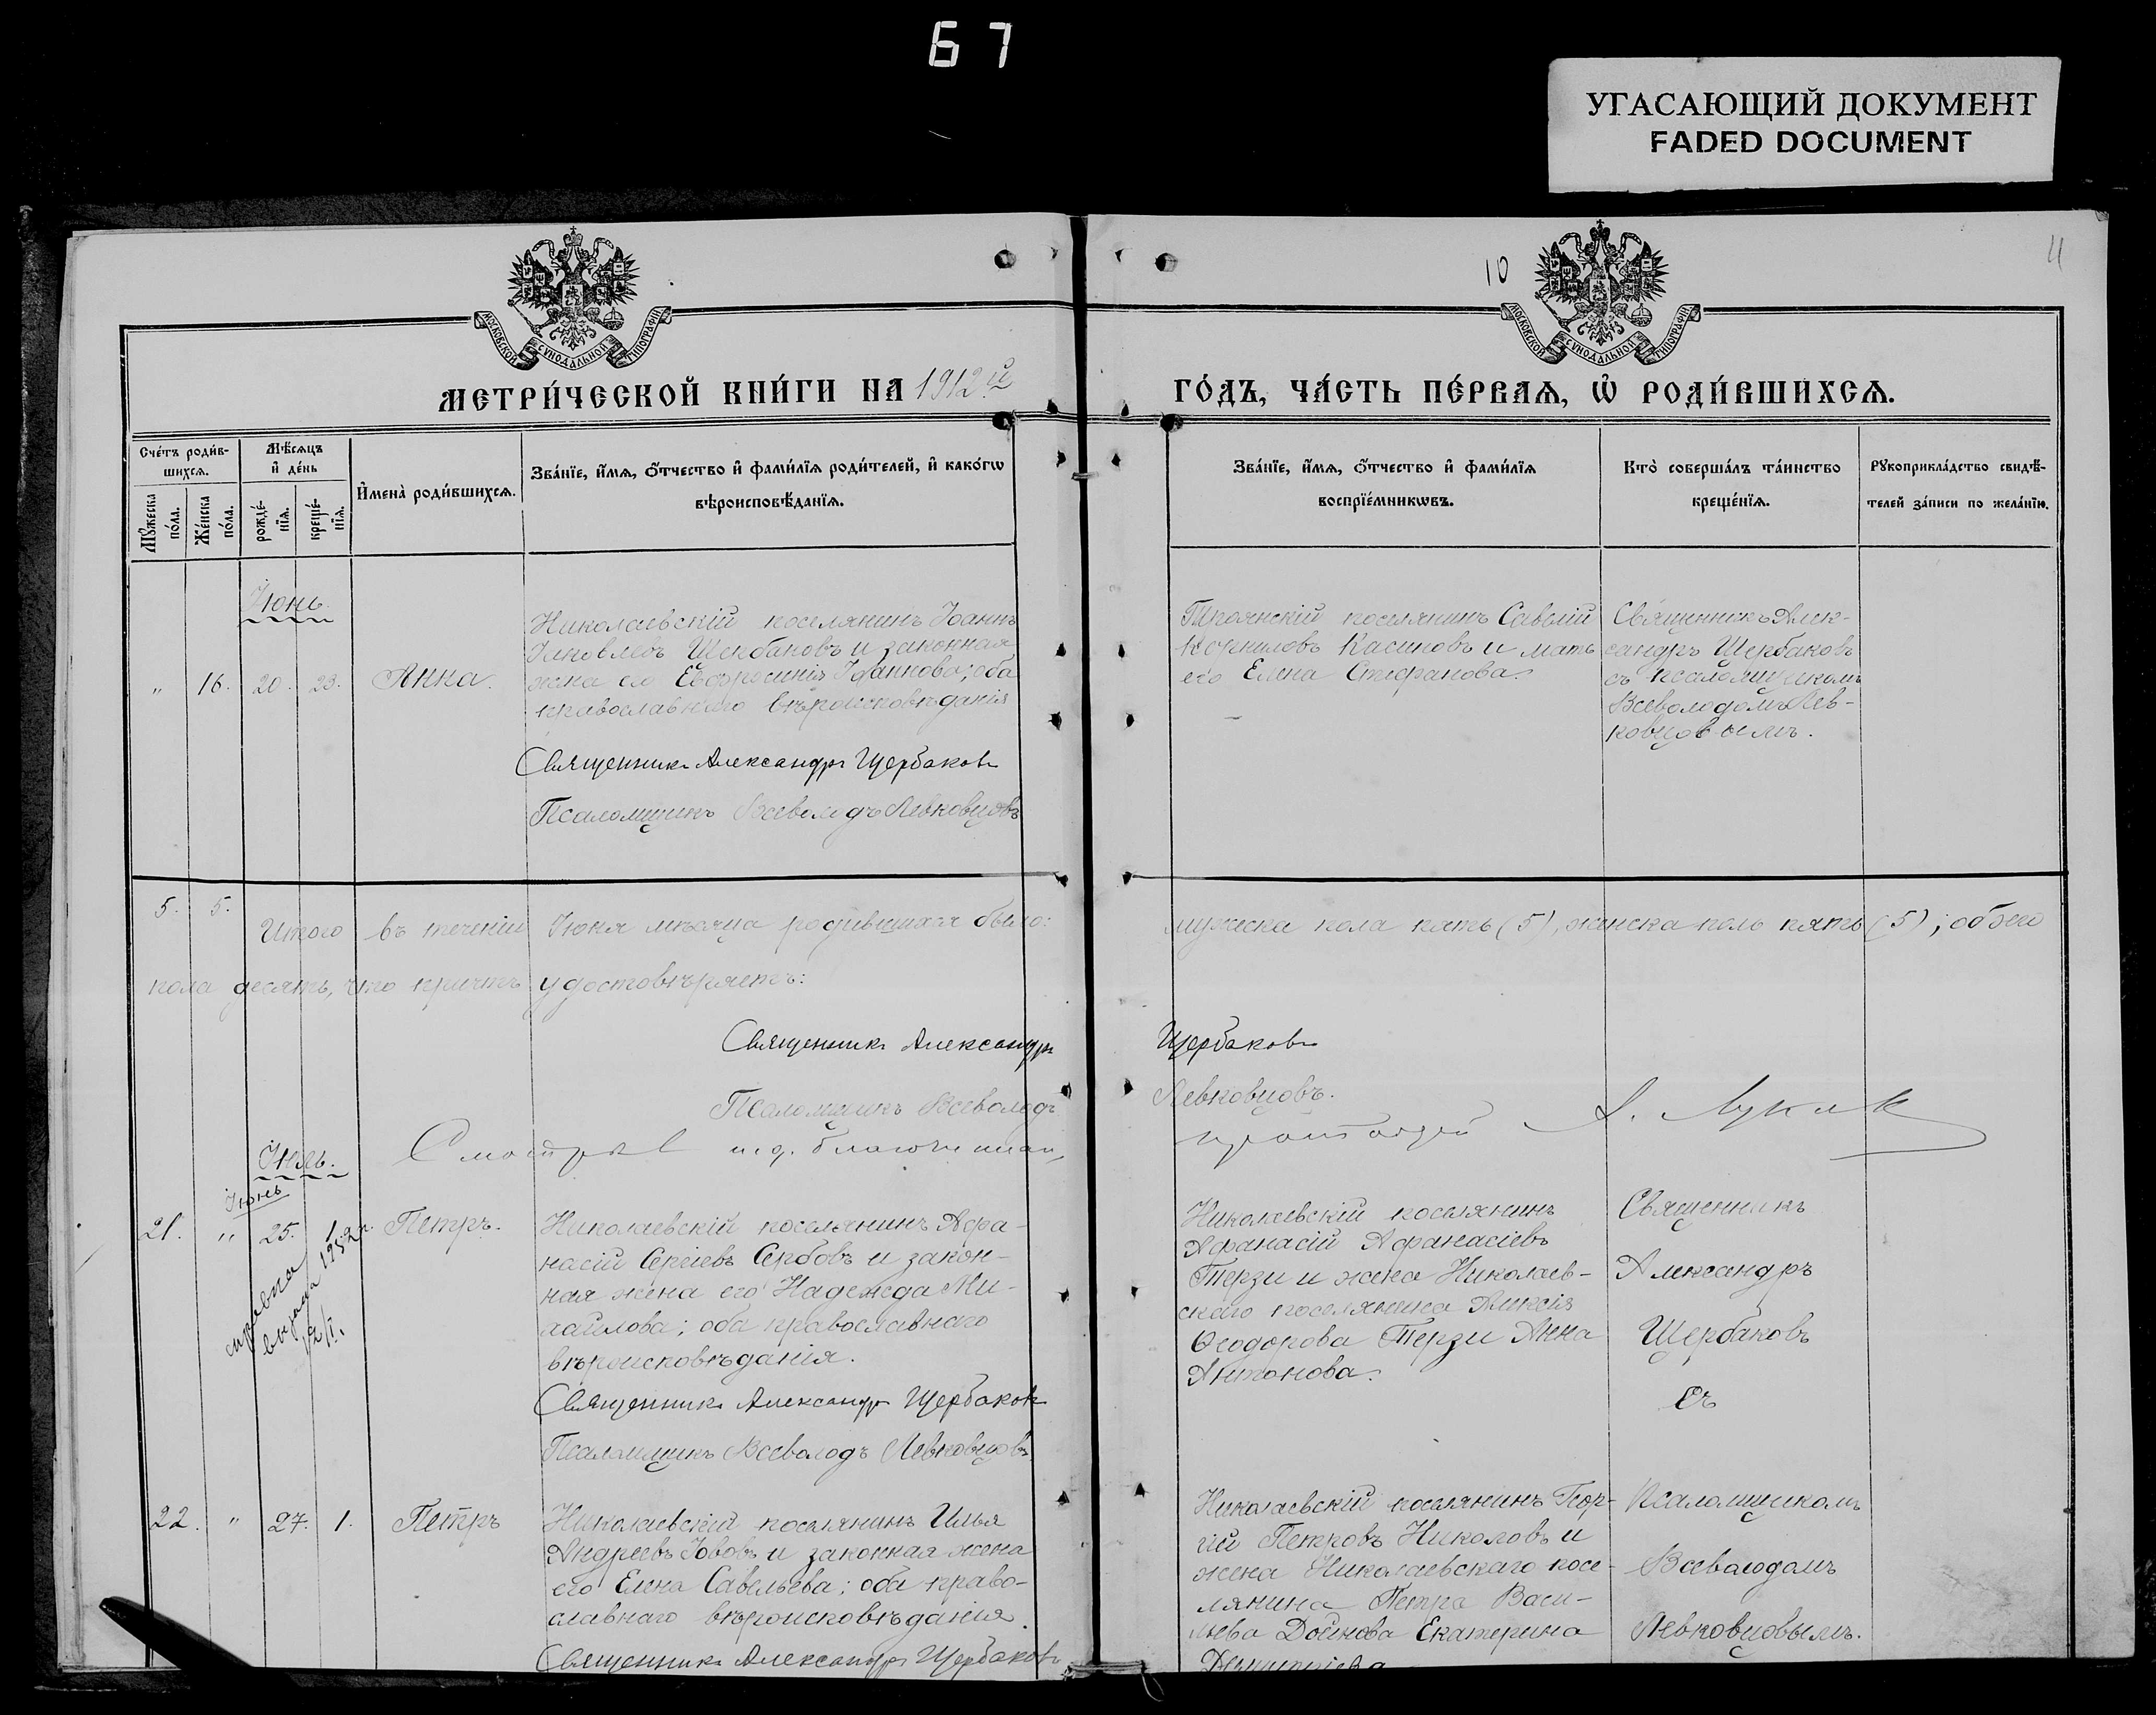 67
УГАСАЮЩИЙ ДОКУМЕНТ
FADED DOCUMENT
10
11
МОСКОВСКОЙ СѴНОДАЛЬНОЙ ТИПОГРАФІИ
МОСКОВСКОЙ СѴНОДАЛЬНОЙ ТИПОГРАФІИ
МЕТРИ́ЧЕСКОЙ КНИ́ГИ НА 1912й
ГО́ДЪ, ЧА́СТЬ ПЕ́РВАѦ, Ѡ РОДИ́ВШИХСѦ.
Сче́тъ роди́в-
шихсѧ.
Мѣ́сѧцъ
и҆ де́нь
Мꙋ́жеска по́ла.
Же́нска по́ла.
рожде́-
нїѧ.
креще́-
нїѧ.
И҆мена̀ роди́вшихсѧ.
Зва́нїе, и҆́мѧ, ѻ҆́тчество и҆ фами́лїѧ роди́телей, и҆ како́гѡ
вѣроисповѣ́данїѧ.
Зва́нїе, и҆́мѧ, ѻ҆́тчество и҆ фами́лїѧ
воспрїе́мникѡвъ.
Кто̀ соверша́лъ та́инство
креще́нїѧ.
Рꙋкоприкла́дство свидѣ́-
телей за́писи по жела́нїю.
Іюнь.
" 16. 20. 23. Анна.
Николаевскій поселянинъ Іоаннъ
Щербановъ и законная
жена его Евфросинія Іоаннова; оба
православнаго вѣроисповѣданія
Священникъ Александръ Щербаковъ
Псаломщикъ Всеволодъ Левковцовъ
поселянинъ Савелій
Корниловъ Касиновъ и мать
его Елена Стефанова.
Священникъ Алек-
сандръ Щербаковъ
съ псаломщикомъ
Всеволодомъ Лев-
ковцовымъ.
5. 5.
Итого въ теченіи Іюня мѣсяца родившихся было: мужеска пола пять (5), женска пола пять (5); обоего
пола десять, что причтъ удостовѣряетъ:
Священникъ Александръ Щербаковъ
Псаломщикъ Всеволодъ Левковцовъ.
Смотрѣлъ и.д. благочиннаго протоіерей
Іюль.
Іюнь
21. " 25. 1. Петръ.
справка
выдана 1952 г.
12/I.
Николаевскій поселянинъ Афа-
насій Сергіевъ Сербовъ и закон-
ная жена его Надежда Ми-
хайлова; оба православнаго
вѣроисповѣданія.
Священникъ Александръ Щербаковъ
Псаломщикъ Всеволодъ Левковцовъ
Николаевскій поселянинъ
Афанасій Афанасіевъ
Терзи и жена Николаев-
скаго поселянина Алексія
Ѳеодорова Терзи Анна
Антонова.
Священникъ
Александръ
Щербаковъ
съ
22. " 27. 1. Петръ
Николаевскій поселянинъ Илья
Андреевъ Іововъ и законная жена
его Елена Савельева; оба право-
славнаго вѣроисповѣданія.
Священникъ Александръ Щербаковъ
Николаевскій поселянинъ Геор-
гій Петровъ Николовъ и
жена Николаевскаго посе-
лянина Петра Васи-
льева Дойнова Екатерина
Димитріева
Псаломщикомъ
Всеволодомъ
Левковцовымъ.